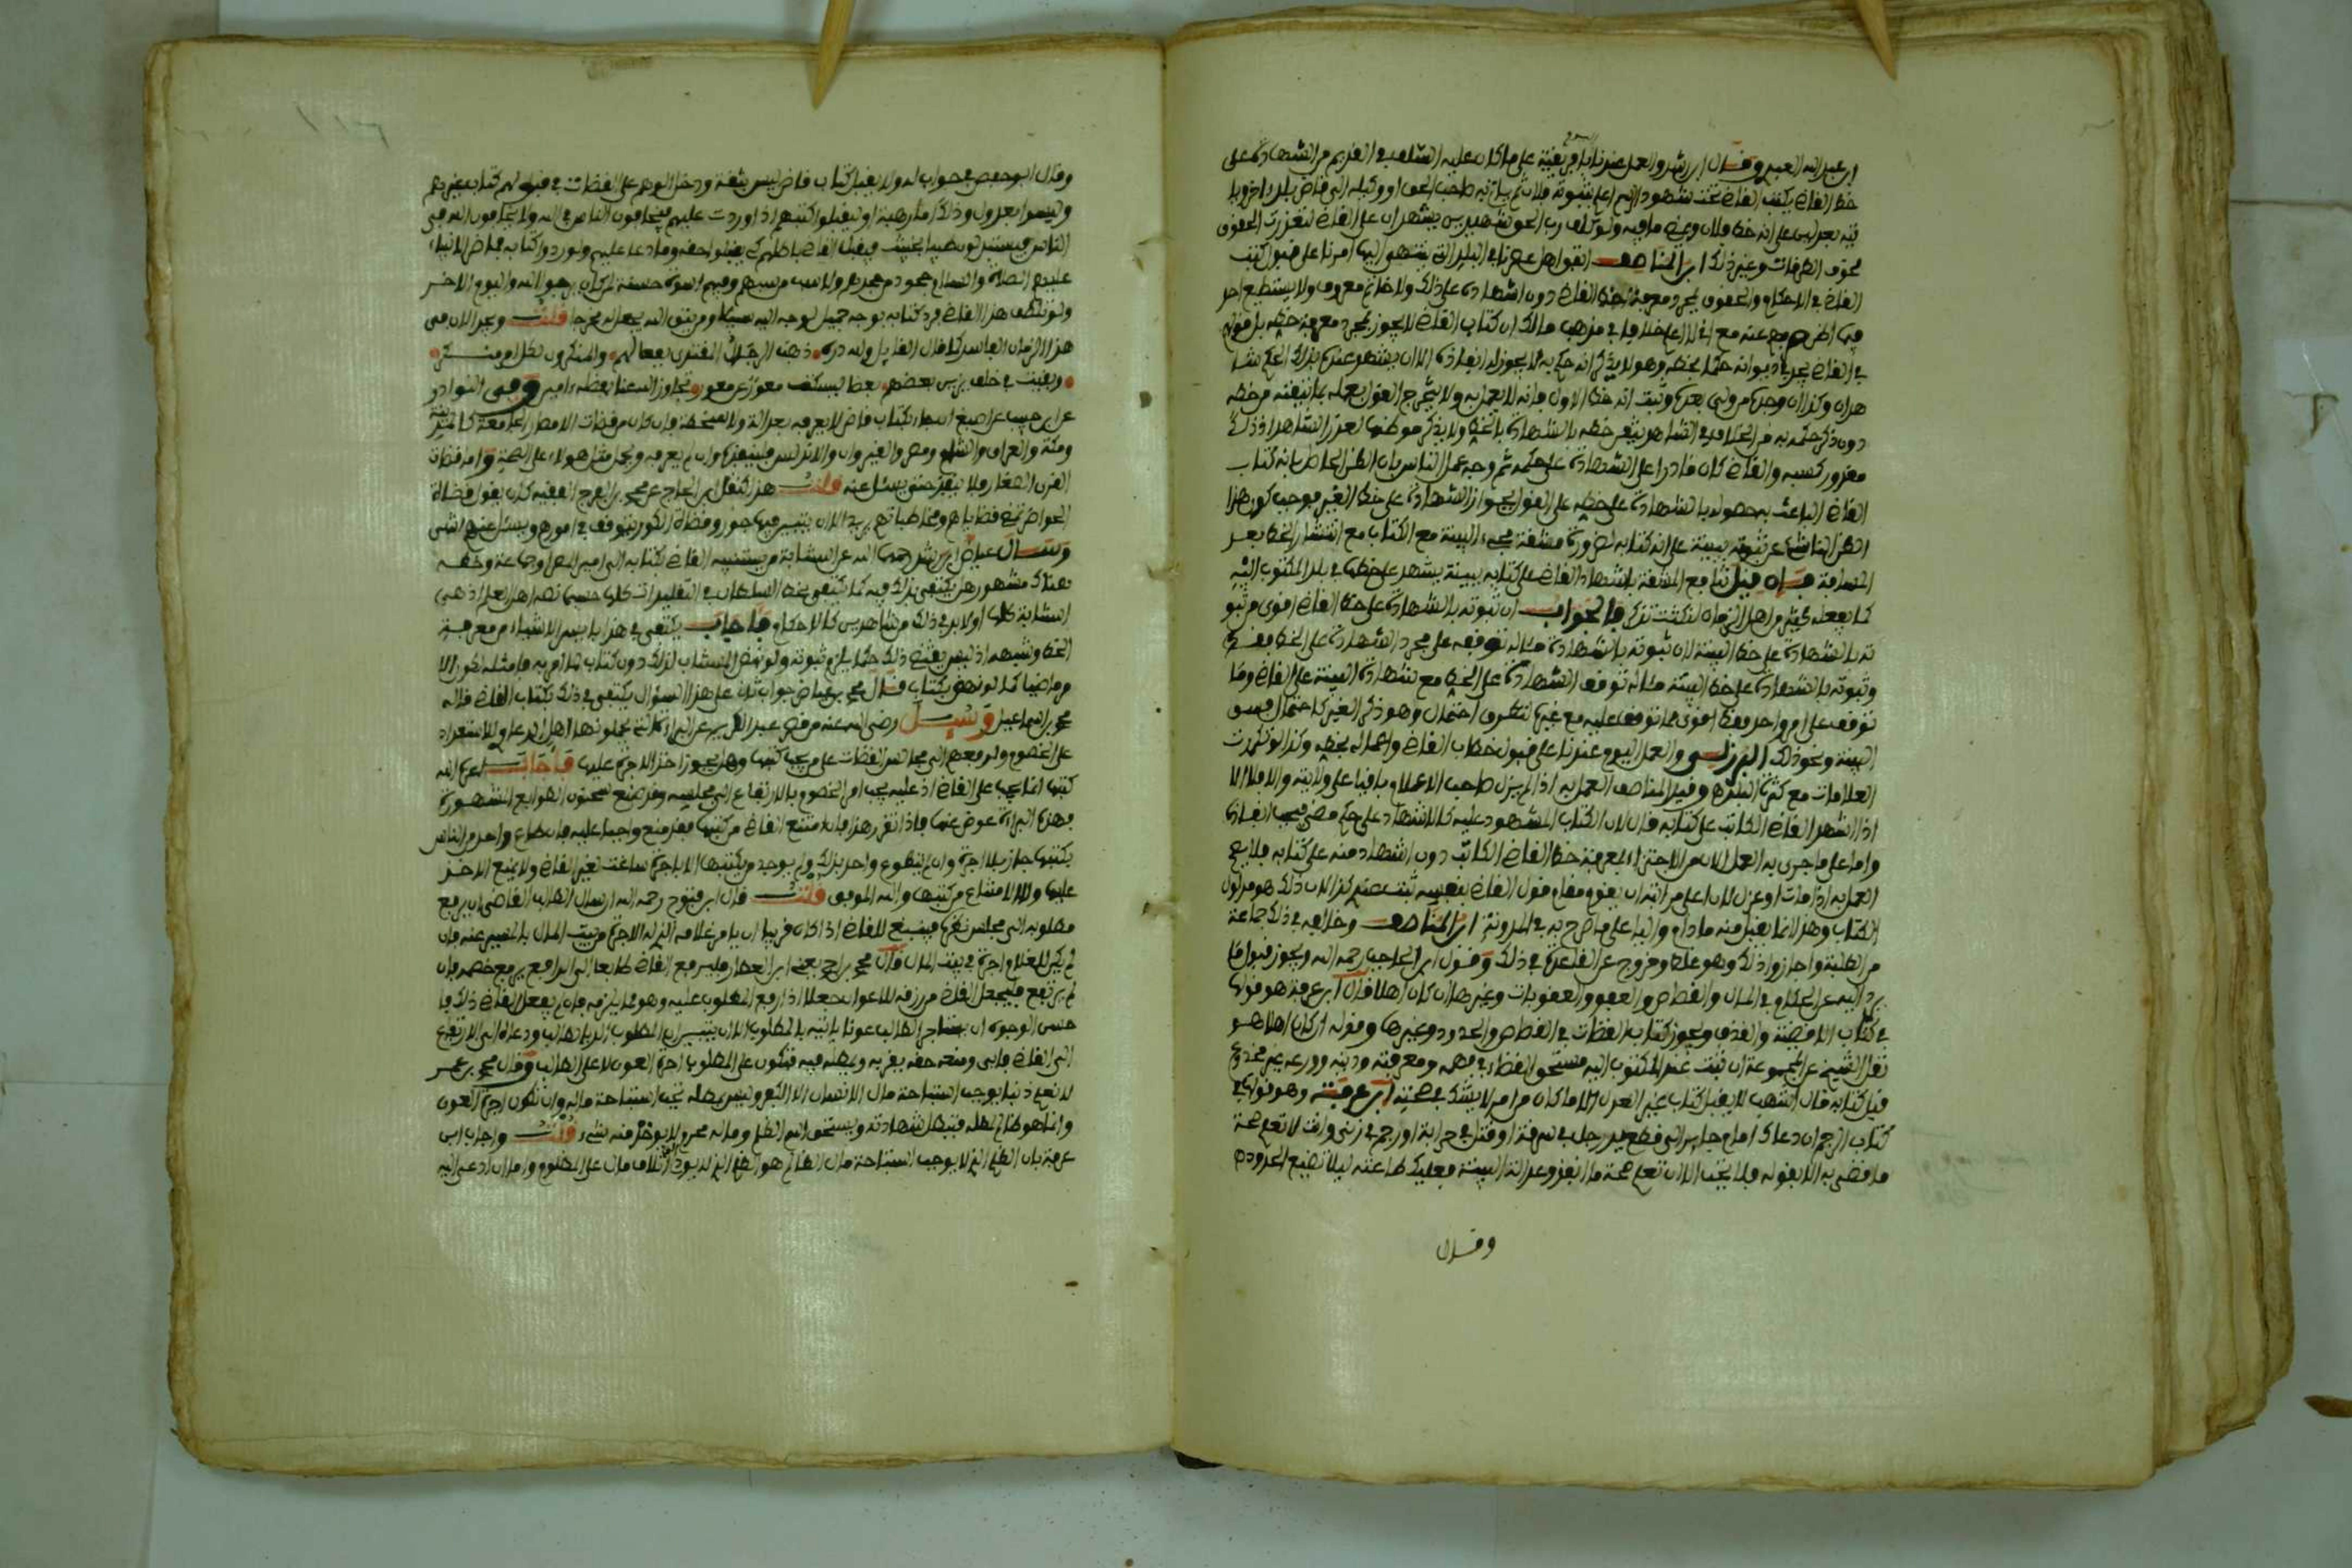 ابن عبد الله العبد وقال ابن رشد والعمل عندنا بافريقية على ما كان عليه السلف في القديم من الشهادة على
خط القاضي يكتب القاضي تحت شهود الرسم اعلم بثبوته فلان ثم ياتي به صاحب الحق او وكيله الى قاضي بلد اخر ويا
تيه بعدلين على انه خط فلان وعلى ما فيه ولو كلف رب الحق شهيدين يشهدان على القاضي لتعذرت الحقوق
لخوف الطرقات وغير ذلك ابن المناصف اتفق اهل عصرنا في البلد التي ينتهي اليها امرنا على قبول كتب
القضاة في الاحكام والحقوق بمجرد معرفة خط القاضي دون اشهاده على ذلك ولا خاتم معروف ولا يستطيع احد
فيما اظن صرفهم عنه مع اني لا اعلم خلافا في مذهب مالك ان كتاب القاضي لا يجوز بمجرد معرفة خطه بل قولهم
في القاضي يجد في ديوانه حكما بخطه وهو لا يذكر انه حكم به لا يجوز له انفاذه الا ان يشهد عنده بذلك الحكم شا
هدان وكذا ان وجده من ولي بعده وثبت انه خط الاول فانه لا يعمل به ولا يتخرج القول بعمله بما تيقنه من خطه
دون ذكر حكمه به من الخلاف في الشاهد يتيقن خطه بالشهادة بالحق ولا يذكر موطنها لعذر الشاهد اذ ذلك
مقدور كسبه والقاضي كان قادرا على الشهادة على حكمه ثم وجه عمل الناس بان الظن الحاصل بانه كتاب
القاضي الباعث به حصوله بالشهادة على خطه على القول بجواز الشهادة على خط الغير موجب كون هذا
الظن الناشئ عن ثبوته ببينة على انه كتابه لضرورة مشقة مجيء البينة مع الكتاب مع انتشار الخط بعد
المسافة فان قيل تندفع المشقة باشهاد القاضي على كتابه ببينة يشهد على خطها في بلد المكتوب اليه
كما يفعله كثير من اهل الزمان فالجواب ان ثبوته بالشهادة على خط القاضي اقوى من ثبو
ته بالشهادة على خط البينة لان ثبوته بالشهادة ماله توقفه على مجرد الشهادة على الخط فقط
وثبوته بالشهادة على خط البينة ماله توقف الشهادة على الخط مع شهادة البينة على القاضي وما
توقف على امر واحد فقط اقوى مما توقف عليه مع غيره لتطرق احتمال وهو ذكر الغير كاحتمال فسق
البينة ونحو ذلك البرزلي والعمل اليوم عندنا على قبول خطاب القاضي واعماله بخطه وكذا
العلامات مع كثرة وقيد المناصف العمل به اذا لم يزل صاحب الاعلام باقيا على ولايته والا فلا الا
اذا اشهد القاضي الكاتب على كتابه قال لان الكتاب المشهود عليه كالاشهاد على حكم مضى فيجب انفاذه
واما على ما جرى به العمل الان من الاجتزاء بمعرفة خط القاضي الكاتب دون اشهاد منه على كتابه فلا يصح
العمل به اذا مات او عزل لان اعلى مراتبه ان يقوم مقام قول القاضي بنفسه ثبت عندي كذا لان ذلك هو مدلول
الكتاب وهذا انما يقبل منه ما دام واليا على ما صرح به في المدونة ابن المناصف وخالفه في ذلك جماعة
من الطلبة واجازوا ذلك وهو غلط وخروج عن القاعدة في ذلك وقول ابن الحاجب رحمه الله ويجوز قبول ما
يرد اليه من الحكام في المال والقصاص والعفو والعقوبات وغيرها ان كان اهلا قال ابن عرفة هو قولها
في كتاب الاقضية والقذف ويجوز كتاب القضاة في القصاص والحدود وغيرها وقوله ان كان اهلا هو
نقل الشيخ عن المجموعة ان ثبت عند المكتوب اليه مستحق القضاء في فهمه ومعرفته ودينه وورعه غير مخدوع
قبل كتابه قال اشهب لا يقبل كتاب غير العدل الا ما كان من امر لا يشك في صحته ابن عرفة وهو قولها في
كتاب الرجم ان دعاك امام جائر الى قطع يد رجل في سرقة او قتل في حرابة او رجم في زنى وانت لا تعلم صحة
ما قضى به الا بقوله فلا تجب الا ان تعلم صحة ما انفذ وعدالة البينة فعليك طاعته ليلا تضيع الحدود
وقال
وقال ابو حفص في جواب له ولا يقبل كتاب قاض ليس بثقة ودخل الوهم على القضاة في قبولهم كتاب غيرهم
وليسوا بعدول وذلك اما رهبة او ليقبلوا كتبهم اذا وردت عليهم فيخافون الناس في الله ولا يخافون الله في
الناس فيستبدلون طيبا بخبيث ويقبل القاضي باطلهم كي يقبلوا حقه وما دعا عليهم ولو ردوا كتابه فلقاض الانبياء
عليهم الصلاة والسلام ولهم اسوة حسنة لمن كان يرجو الله واليوم الاخر
ولو تلطف هذا القاضي فرد كتابه بوجه جميل لوجد اليه سبيلا ومن يتق الله يجعل له مخرجا قلت ونحن الان في
هذا الزمان الفاسد كما قال القايل ولله دره ذهب الرجال المقتدى بفعالهم والمنكرون لكل امر منكر
وبقيت في خلف يزين بعضهم بعضا ليسكت معور عن معور تجاوز الله عنا بفضله امين وفي النوادر
عن ابن حبيب عن اصبغ ان جاء بكتاب قاض لا يعرفه بعدالة ولا سخطة فان كان من قضاة الامصار الجامعة كالمدينة
ومكة والعراق والشام ومصر والقيروان والاندلس فلينفذه وان لم يعرفه ويحمل مثل هؤلاء على الصحة واما قضاة
القرى الصغار فلا ينفذه حتى يسئل عنه قلت هذا كنقل ابن الحاج عن محمد بن الفرج الفقيه كان يقول قضاة
الحواضر تحمل قضاياهم ومخاطباتهم الا ان يتبين فيها جور وقضاة الكور يتوقف في امورهم ويسئل عنها
وسال عياض ابن رشد رحمهما الله عن النشابة من يستنيبه القاضي لكتابه الى امير المصر او جماعة وخطه
هناك مشهور هل يكتفى بذلك فيه كما يكتفى بخط السلطان في التقليدات كلها
النشابة كلها او لا بد في ذلك من شاهدين كالاحكام فاجاب يكتفى في هذا بايسر الاشياء من معرفة
الخط وشبهه اذ ليس يقتضي ذلك حكما يلزم ثبوته
كما لو نهض بكتاب قال محمد بن عياض جواب ثان على هذا السؤال يكتفى في ذلك بكتاب القاضي قاله
محمد بن اسماعيل وسئل رضي الله عنه
على الخصوم ولرفعهم الى مجالس القضاة على من يجب كتبها وهل يجوز اخذ الاجرة عليها فاجاب اعزه الله
كتبها انما يجب على القاضي اذ عليه يجب امر الخصوم بالارتفاع الى مجلسه وقد صنع سحنون الطوابع المشهورة
فهذه البراءة عوض عنها فاذا تقرر هذا فان امتنع القاضي من كتبها فقد منع واجبا عليه فان طاع واحد من الناس
بكتبها جاز بلا اجرة وان لم يتطوع واحد بذلك ولم يوجد من يكتبها الا باجرة ساغت لغير القاضي ولا يمنع الاخذ
عليها والا لامتناع من كتبها والله الموفق قلت قال ابن فتوح رحمه الله ان سال الطالب القاضي ان يرفع
مطلوبه الى مجلس نظره فينبغي للقاضي اذا كان قريبا ان يامر غلامه الذي له الاجرة من بيت المال بالمسير عنه فان
لم يكن للغلام اجرة في بيت المال قال محمد بن احمد يعني ابن العطار فليدفع القاضي طابعا الى الدافع يرفع خصمه فان
لم يرتفع فليجعل القاضي من رزقه للاعوان جعلا اذا رفع المطلوب عليه وهو مما يلزمه فان لم يفعل القاضي ذلك فا
حسن الوجوه ان يستاجر الطالب عونا ياتيه بالمطلوب الا ان يتبين ان المطلوب الد بالطالب ودعاه الى الارتفاع
الى القاضي فابى ومنعه حقه فتكون على المطلوب اجرة العون لا على الطالب وقال محمد بن عمر
لا نعلم ذنبا يوجب استباحة مال الانسان الا الكفر وليس مطله تجب استباحة ماله وان تكون اجرة العون
وانما هو ظالم بمطله فتبطل شهادته ويستحق اسم الظلم وماله محرم لا يؤخذ منه شيء قلت واجاب ابن
عرفة بان الظلم الذي لا يوجب استباحة مال الظالم هو الظلم الذي لا يوجب اتلاف مال على المظلوم واما ان ادعى اليه